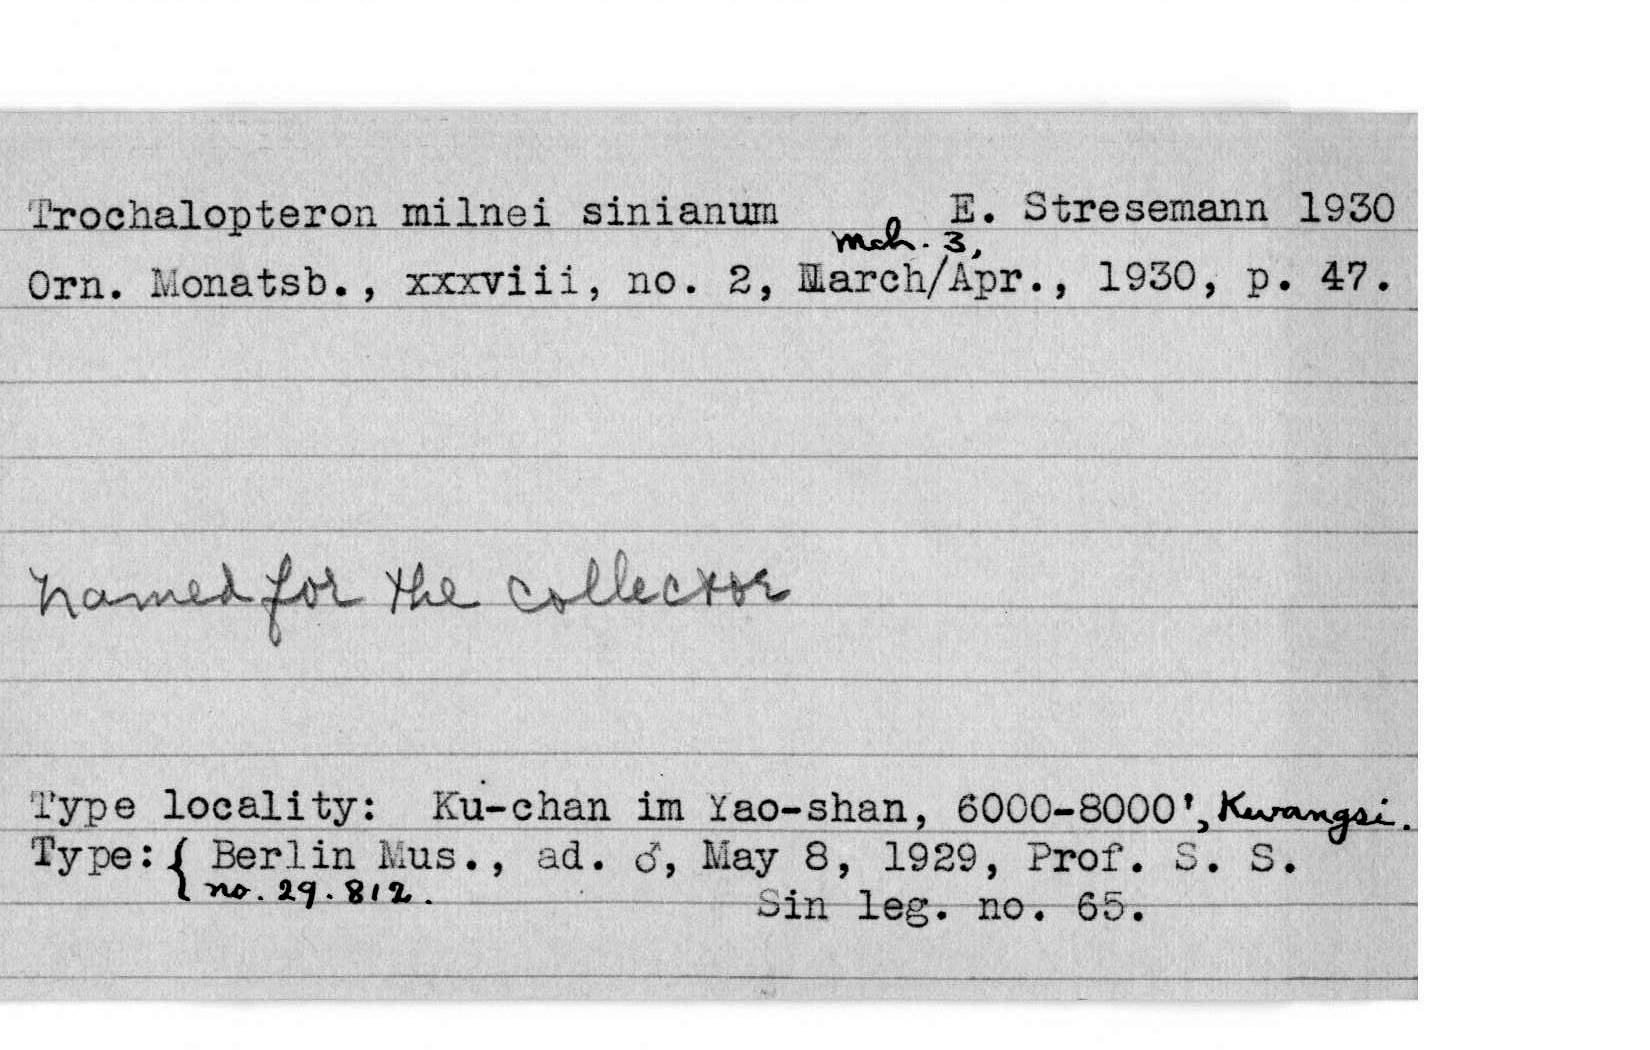 Trochalopteron milnei sinianum E. Stresemann 1930
Mch. 3,
Orn. Monatsb., xxxviii, no. 2, March/Apr., 1930, p. 47.
named for the collector
Type locality: Ku-chan im Yao-shan, 6000-8000', Kwangsi.
Type: { Berlin Mus., ad. ♂, May 8, 1929, Prof. S. S.
no. 29.812. Sin leg. no. 65.